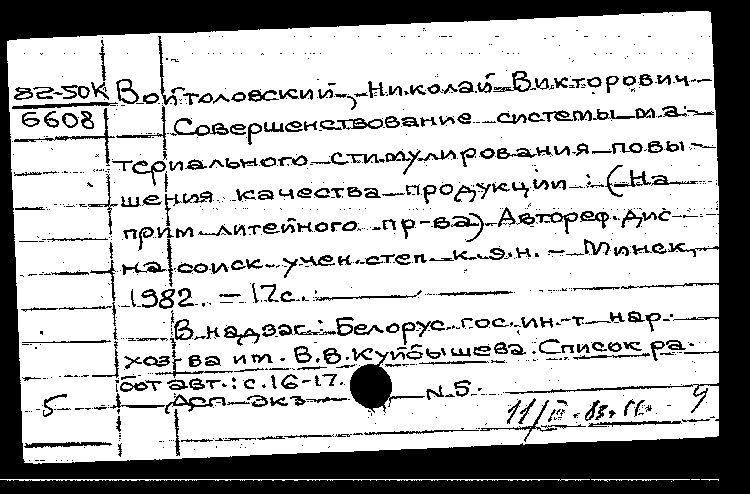 82-50К Войтоловский, Николай Викторович
6608 Совершенствование системы ма-
териального стимулирования повы-
шения качества продукции : (На
прим. литейного пр-ва) Автореф. дис
на соиск. учен. степ. к.э.н. - Минск,
1982. - 17с.
В надзаг.: Белорус. гос. ин-т нар.
хоз-ва им. В.В. Куйбышева. Список ра-
бот авт.: с.16-17.
5 Дсп экз N 5.
11/III-83.